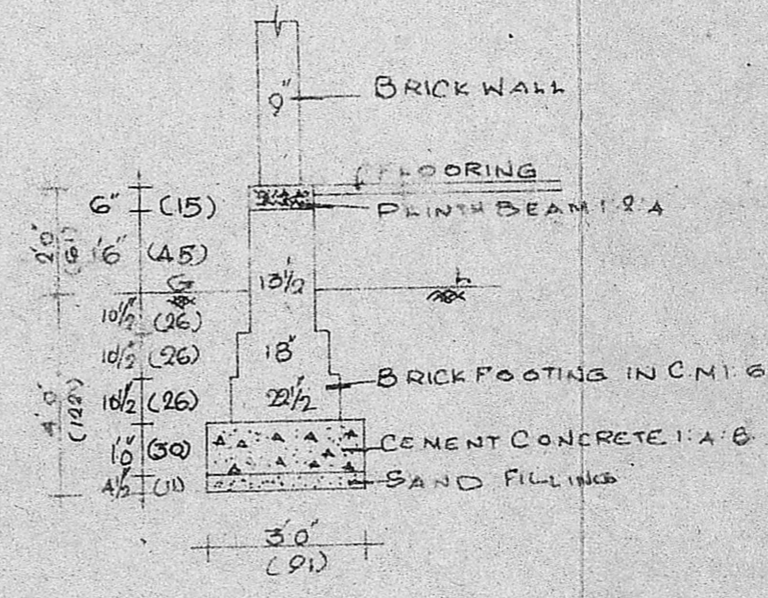 9"
BRICK WALL
FLOORING
6" (15)
PLINTH BEAM 1:2:4
2'0" (61)
1'6" (45)
G L
13½
10½" (26)
10½" (26)
18"
10½" (26)
22½
BRICK FOOTING IN C.M 1:6
4'0" (122)
1'0" (30)
CEMENT CONCRETE 1:4:8
4½ (11)
SAND FILLING
3'0"
(91)